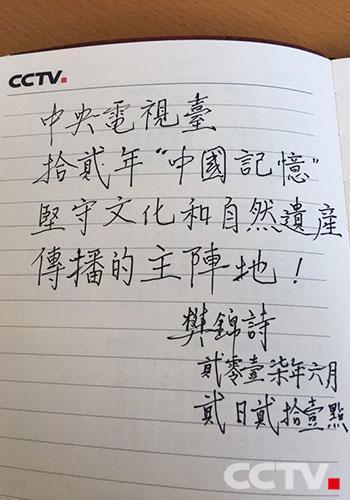 CCTV.
中央電視臺
拾貳年“中國記憶”
堅守文化和自然遺産
傳播的主陣地！
樊錦詩
貳零壹柒年六月
貳日貳拾壹點
CCTV.